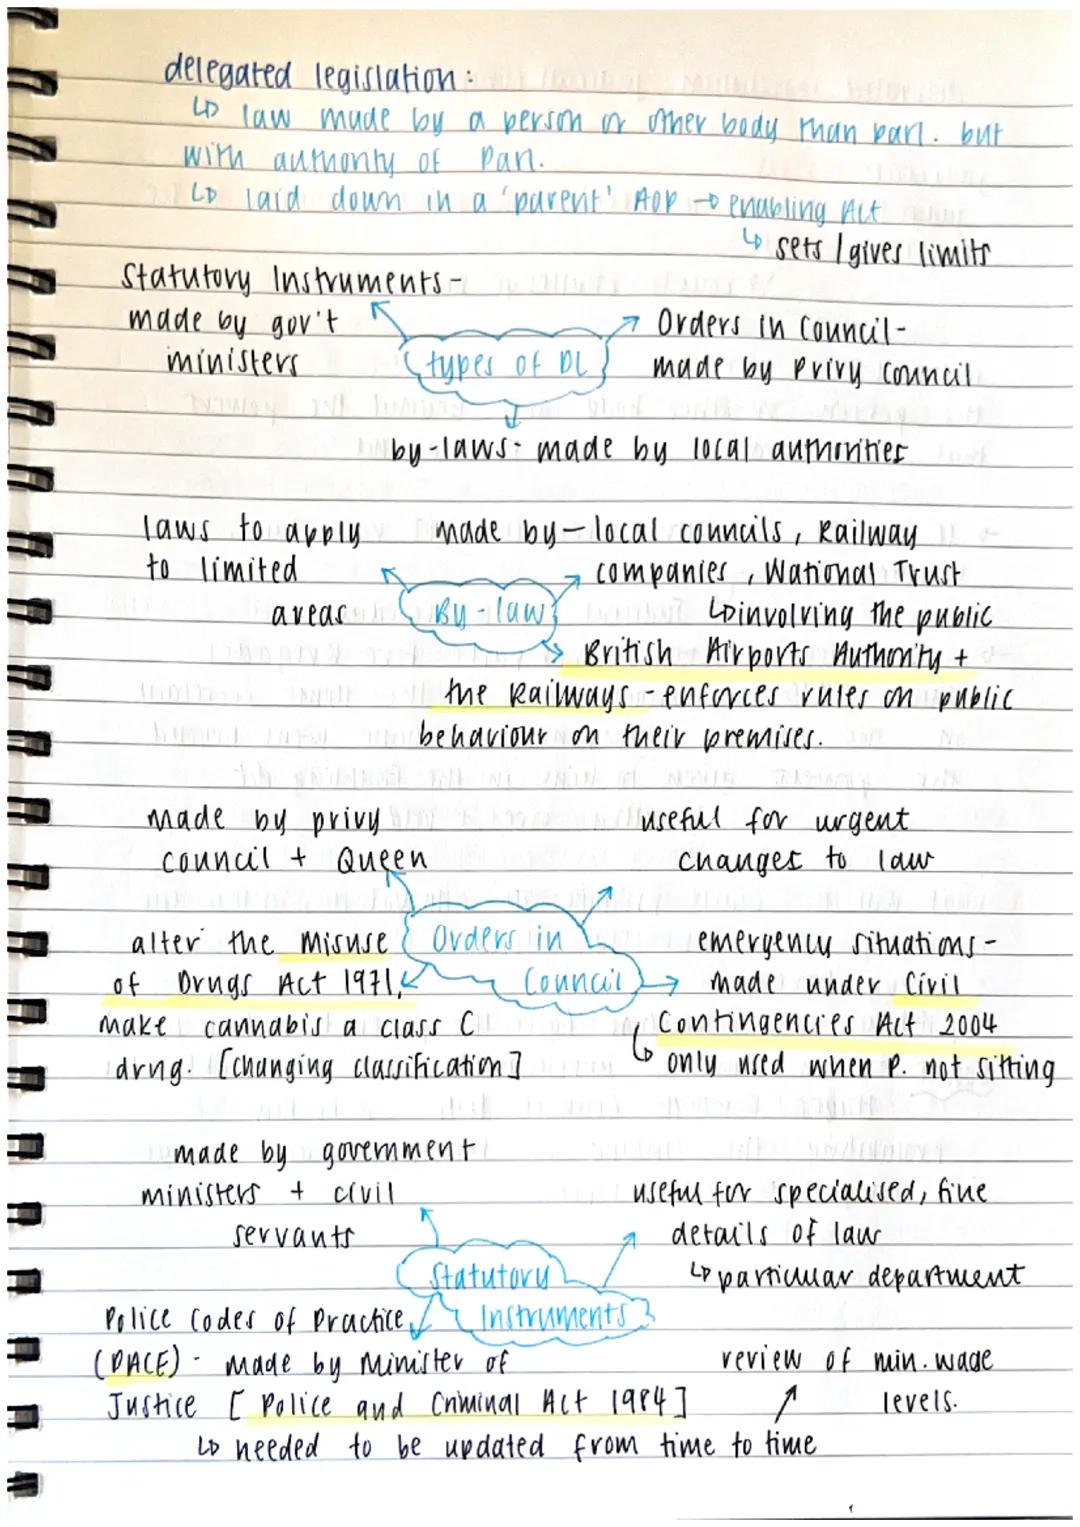 delegated legislation:
↳ law made by a person or other body than parl. but
with authority of parl.
↳ laid down in a 'parent' AOP → enabling Act
↳ sets / gives limits
Statutory Instruments-
made by gov't
ministers
types of DL
Orders in Council-
made by Privy Council
by-laws- made by local authorities
laws to apply
to limited
areas
By-laws
made by - local councils, Railway
companies, National Trust
↳ involving the public
British Airports Authority +
the Railways - enforces rules on public
behaviour on their premises.
made by privy
council + Queen
useful for urgent
changes to law
Orders in
Council
alter the Misuse
of Drugs Act 1971,
make cannabis a class C
drug. [changing classification]
emergency situations-
made under Civil
Contingencies Act 2004
↳ only used when P. not sitting
made by government
ministers + civil
servants
useful for specialised, fine
details of law
↳ particular department
Statutory
Instruments
Police Codes of Practice
(PACE) - made by Minister of
Justice [Police and Criminal Act 1984]
↳ needed to be updated from time to time
review of min. wage
levels.